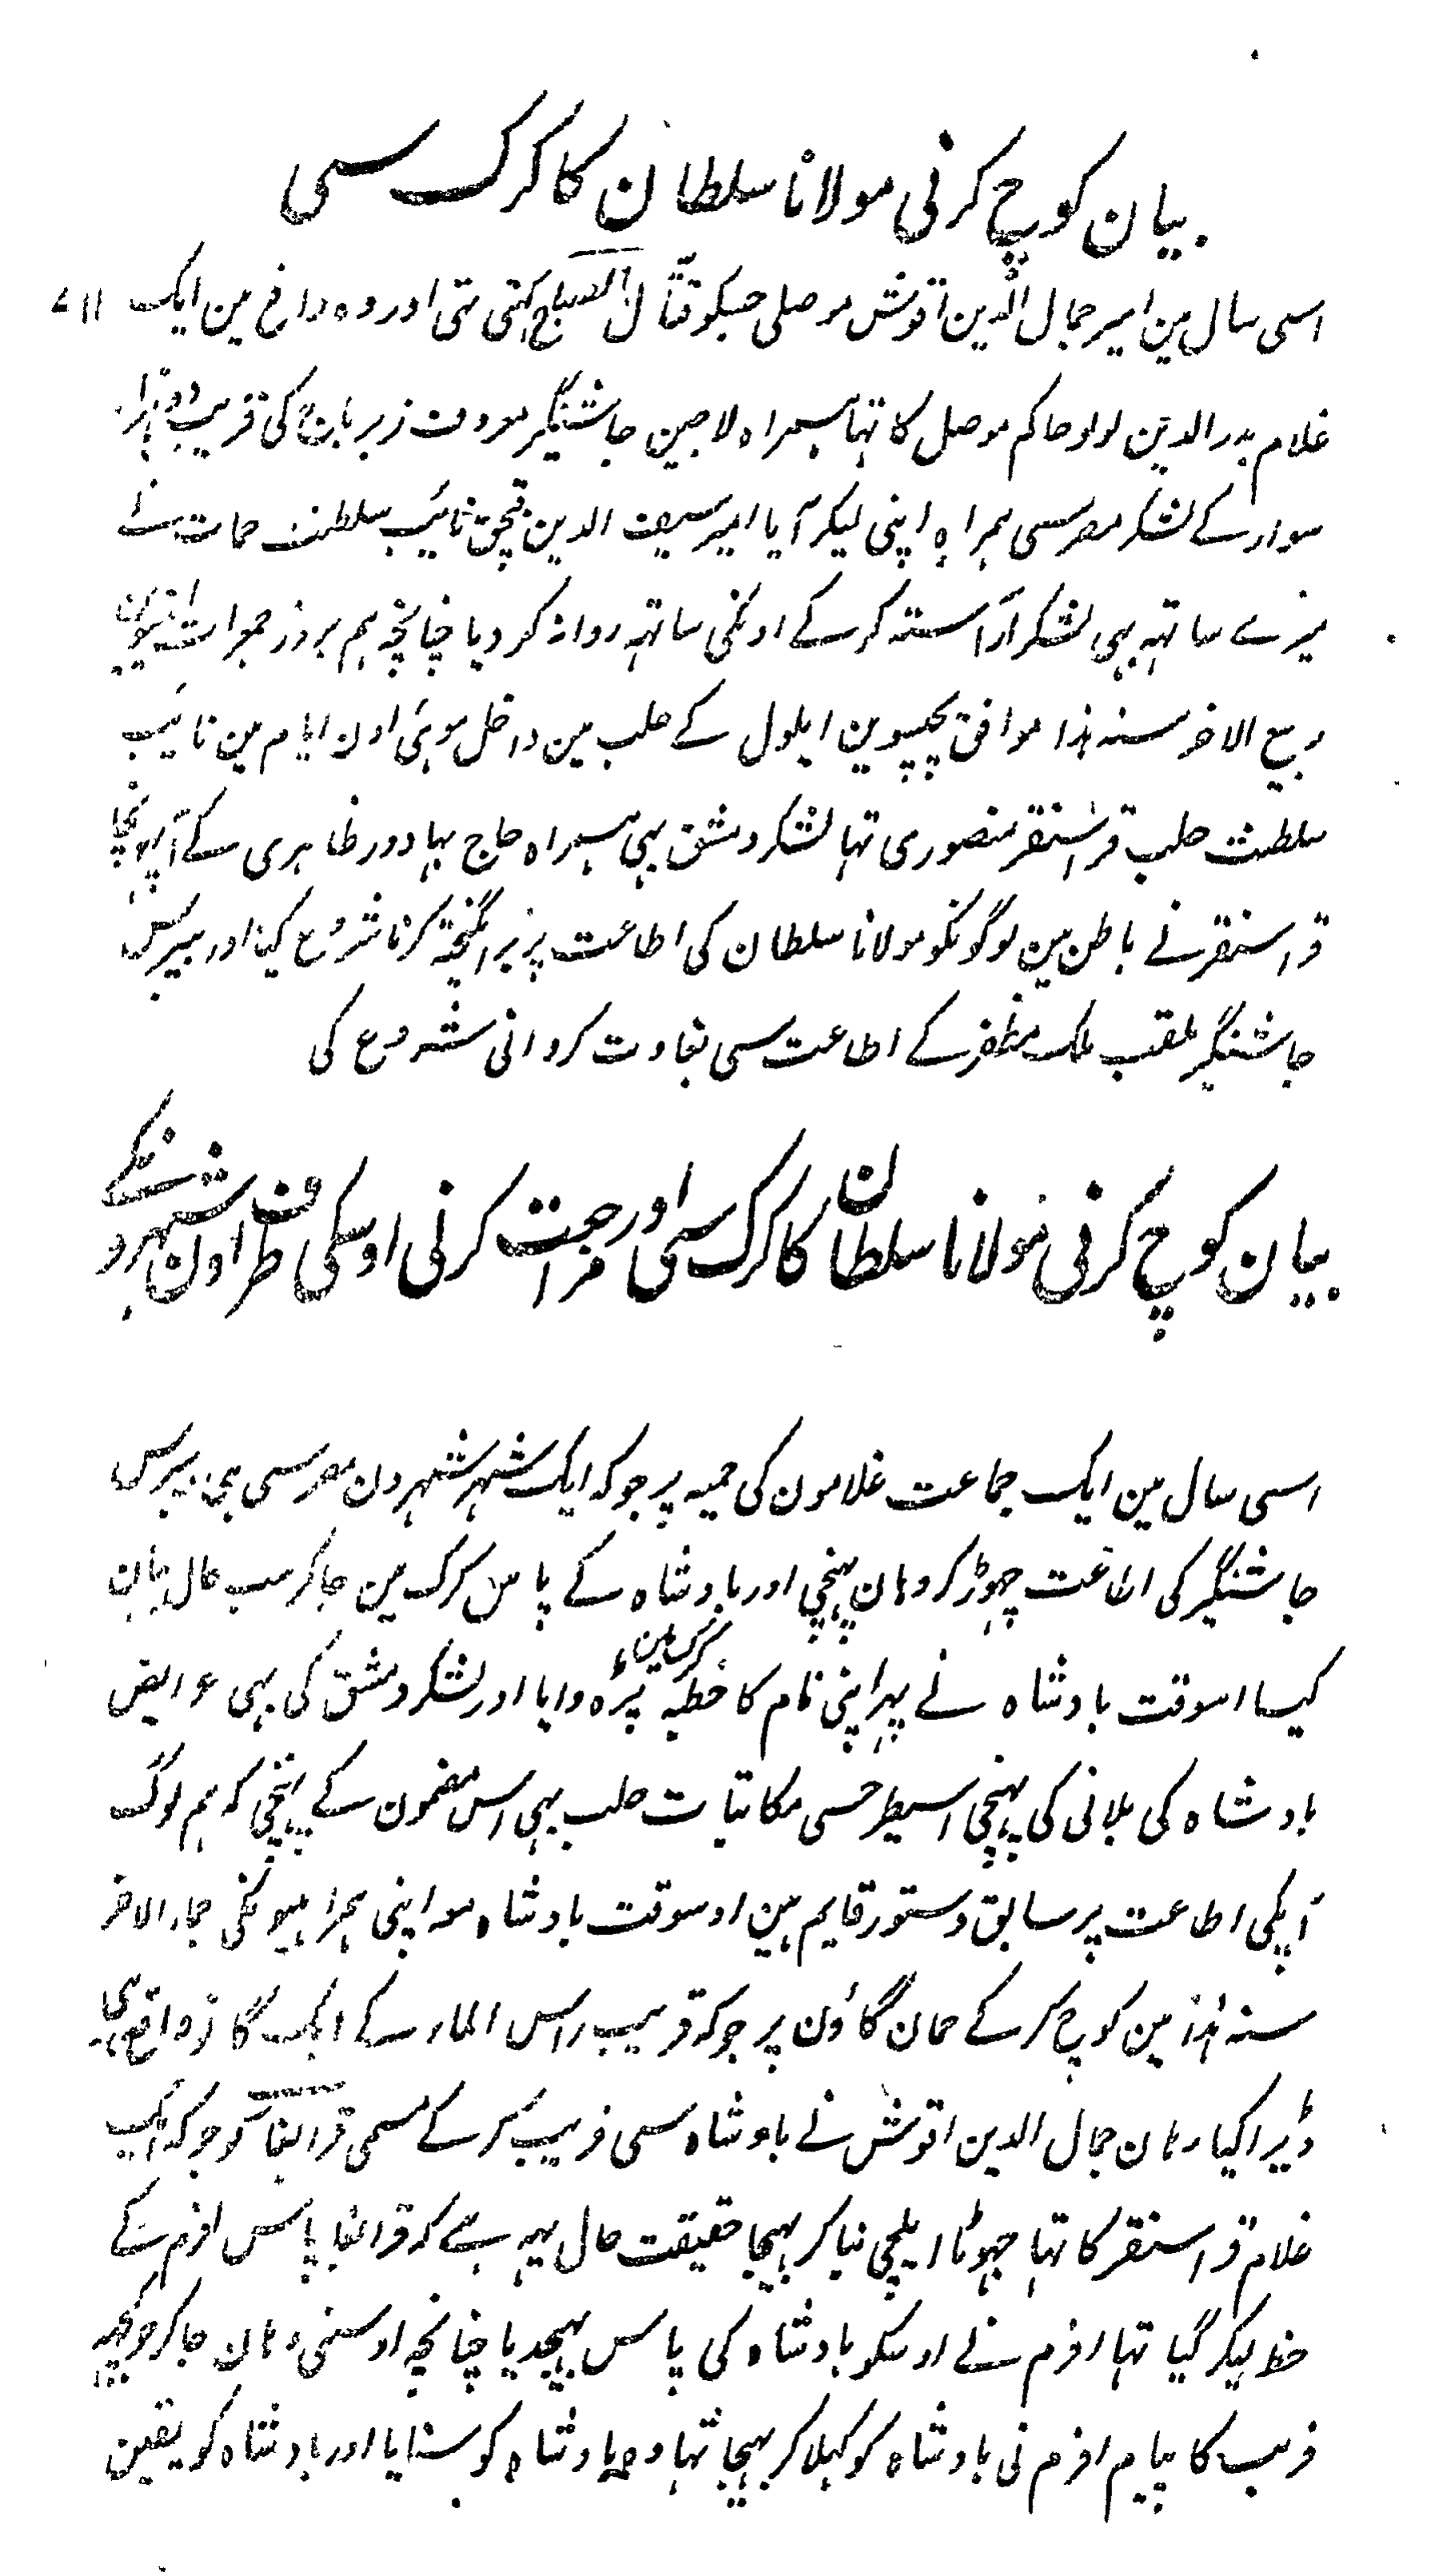 بیان کوچ کرنی مولانا سلطان کا کرک سی
اسی سال مین امیر جمال الدین اقوش موصلی جسکو قتّال السباع کہتی تہی اور وہ واقع مین ایک ۷۱۱
غلام بدر الدین لولو حاکم موصل کا تہا ہمراہ لاجین جاشنگیر معروف زیرباج کی قریب دو ہزار
سوار کے لشکر مصر سی ہمراہ اپنی لیکر آیا امیر سیف الدین قبجق نایٔب سلطنت حمات نے
میرے ساتہہ بہی لشکر آراستہ کر کے اونکی ساتہہ روانہ کر دیا چنانچہ ہم بروز جمعرات انیسوین
ربیع الاخر سنہ ہذا موافق پچیسوین ایلول کے حلب مین داخل ہوئی اون ایام مین نایٔب
سلطنت حلب قراسنقر منصوری تہا لشکر دمشق بہی ہمراہ حاج بہادور ظاہری کے آپہونچا
قراسنقر نے باطن مین لوگونکو مولانا سلطان کی اطاعت پر برانگیختہ کرنا شروع کیا اور بیبرس
جاشنگیر ملقب ملک مظفر کے اطاعت سی بغاوت کروانی شروع کی
بیان کوچ کرنی مولانا سلطان کا کرک سی اور مراجعت کرنی اوسکی طرف اون شہرونکے
اسی سال مین ایک جماعت غلامون کی حمیہ پر جو کہ ایک شہر شہرون مصر سی ہی بیبرس
جاشنگیر کی اطاعت چہوڑ کر وہان پہنچی اور بادشاہ کے پاس کرک مین جا کر سب حال بیان
کیا اسوقت بادشاہ نے پہر اپنی نام کا خطبہ کرک مین پڑہوایا اور لشکر دمشق کی بہی عرایض
بادشاہ کی بلانی کی پہنچی اسیطرح سی مکاتبات حلب بہی اس مضمون کے پہنچی کہ ہم لوگ
آپکی اطاعت پر سابق دستور قایم ہین اوسوقت بادشاہ معہ اپنی ہمراہیونکی جماد الاخر
سنہ ہذا مین کوچ کر کے حمان گاؤن پر جو کہ قریب راس الماء کے ایک گاؤن واقع ہی
ڈیرا کیا وہان جمال الدین اقوش نے بادشاہ سی فریب کر کے مسمی قرابغا کو جو کہ ایک
غلام قراسنقر کا تہا جہوٹا ایلچی بنا کر بہیجا حقیقت حال یہہ ہے کہ قرابغا پاس افرم کے
خط لیکر گیا تہا افرم نے اوسکو بادشاہ کی پاس بہیجدیا چنانچہ اوسنی وہان جا کر جو کچہہ
فریب کا پیام افرم نی بادشاہ کو کہلا کر بہیجا تہا وہ بادشاہ کو سنایا اور بادشاہ کو یقین